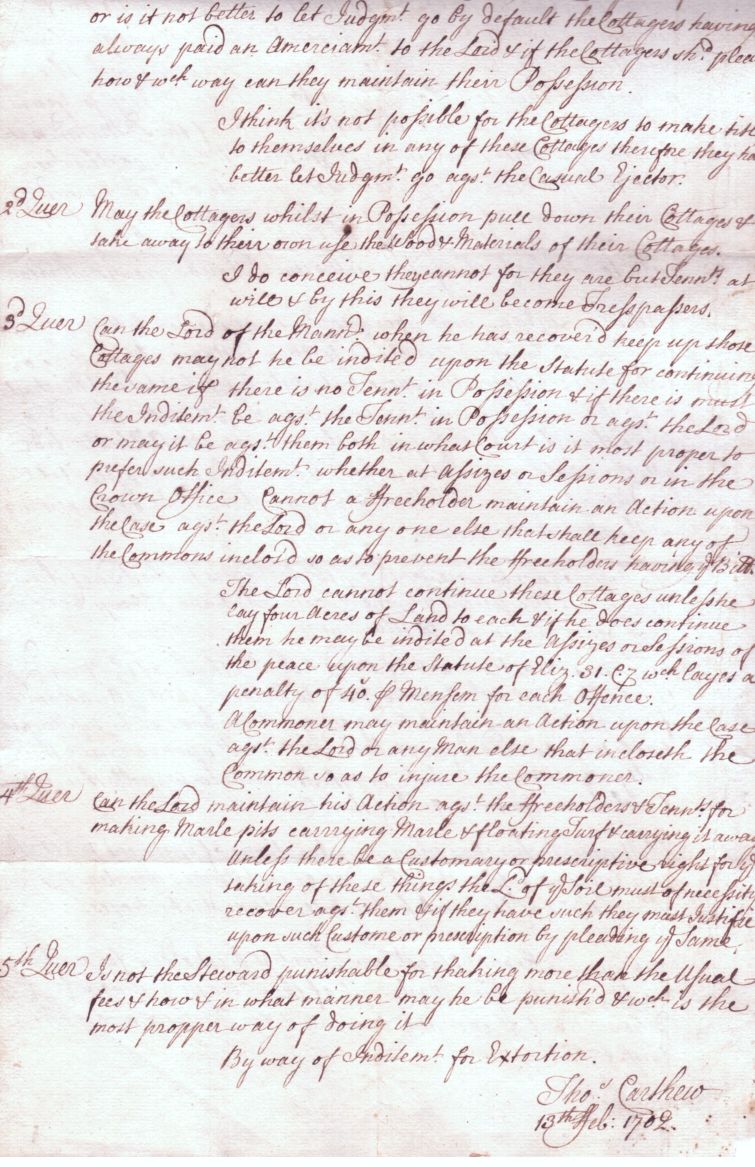 or is it not better to let Judgmt. go by default the Cottagers having
always paid an Amerciamt. to the Lord & if the Cottagers shd. plea
how & wch way can they maintain their Possession.
I think it's not possible for the Cottagers to make titl
to themselves in any of these Cottages therefore they ha
better let Judgmt. go agst. the Casual Ejector.
2d Quer May the Cottagers whilst in Possession pull down their Cottages &
take away to their own use the Wood & Materials of their Cottages.
I do conceive they cannot for they are but Tennts. at
will & by this they will become Tresspassers.
3d Quer Can the Lord of the Mannr. when he has recover'd keep up those
Cottages may not he be indited upon the Statute for continuin
the same if there is no Tennt. in Possession & if there is must
the Inditemt. be agst. the Tennt. in Possession or agst. the Lord
or may it be agst. them both in what Court is it most proper to
prefer such Inditemt. whether at Assizes or Sessions or in the
Crown Office Cannot a ffreeholder maintain an Action upon
the Case agst. the Lord or any one else that shall keep any of
the Commons inclos'd so as to prevent the ffreeholders having ye
The Lord cannot continue these Cottages unless he
lay four Acres of Land to each & if he does continue
them he may be indited at the Assizes or Sessions of
the peace upon the Statute of Eliz. 31. C7 wch layes a
penalty of 40s. p Mensem for each Offence.
A Commoner may maintain an Action upon the Case
agst. the Lord or any Man else that incloseth the
Common so as to injure the Commoner.
4th Quer Can the Lord maintain his Action agst. the ffreeholders & Tennts. for
making Marle pits carrying Marle & floating Turf & carrying it away
Unless there be a Customary or prescriptive right for ye
taking of these things the L. of ye Soil must of necessity
recover agst. them & if they have such they must Justifie
upon such Custome or prescription by pleading ye Same.
5th Quer Is not the Steward punishable for thaking more than the Usual
fees & how & in what manner may he be punish'd & wch. is the
most propper way of doing it
By way of Inditemt. for Extortion.
Thos. Carthew
13th ffeb: 1702.